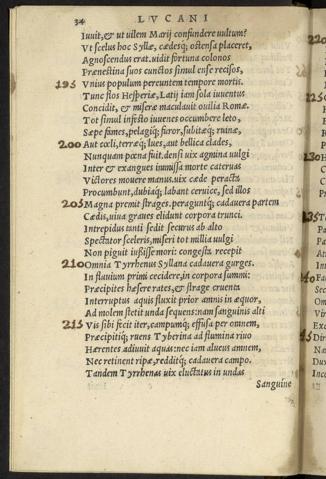 34 LVCANI
Iuuit, & ut uilem Marij confundere uultum?
Vt scelus hoc Syllæ, cædesq; ostensa placeret,
Agnoscendus erat. uidit fortuna colonos
Prænestina suos cunctos simul ense recisos,
195 Vnius populum pereuntem tempore mortis.
Tunc flos Hesperiæ, Latij iam sola iuuentus
Concidit, & miseræ maculauit ouilia Romæ.
Tot simul infesto iuuenes occumbere leto,
Sæpe fames, pelagiq; furor, subitæq; ruinæ,
200 Aut cœli, terræq; lues, aut bellica clades,
Nunquam pœna fuit. densi uix agmina uulgi
Inter & exangues inmissa morte cateruas
Victores mouere manus. uix cæde peracta
Procumbunt, dubiaq; labant ceruice, sed illos
205 Magna premit strages. peraguntq; cadauera partem
Cædis, uiua graues elidunt corpora trunci.
Intrepidus tanti sedit securus ab alto
Spectator sceleris, miseri tot millia uulgi
Non piguit iussisse mori: congesta recepit
210 Omnia Tyrrhenus Syllana cadauera gurges.
In fluuium primi cecidere, in corpora summi:
Præcipites hæsere rates, & strage cruenta
Interruptus aquis fluxit prior amnis in æquor,
Ad molem stetit unda sequens: nam sanguinis alti
215 Vis sibi fecit iter, campumq; effusa per omnem,
Præcipitiq; ruens Tyberina ad flumina riuo
Hærentes adiuuit aquas: nec iam alueus amnem,
Nec retinent ripæ, redditq; cadauera campo.
Tandem Tyrrhenas uix eluctatus in undas
Sanguine
220
230
235
240
245